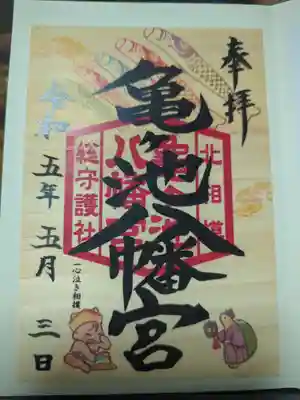 奉拝
北相模
亀ヶ池
八幡宮
総守護社
亀ヶ池八幡宮
令和五年五月三日
一心泣き相撲